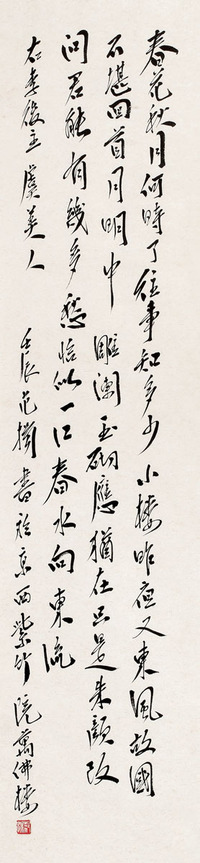 春花秋月何時了往事知多少小楼昨夜又東風故國
不堪回首月明中 雕闌玉砌應猶在只是朱顔改
問君能有幾多愁恰似一江春水向東流
右李後主虞美人
壬辰范 書於京西紫竹院萬佛楼